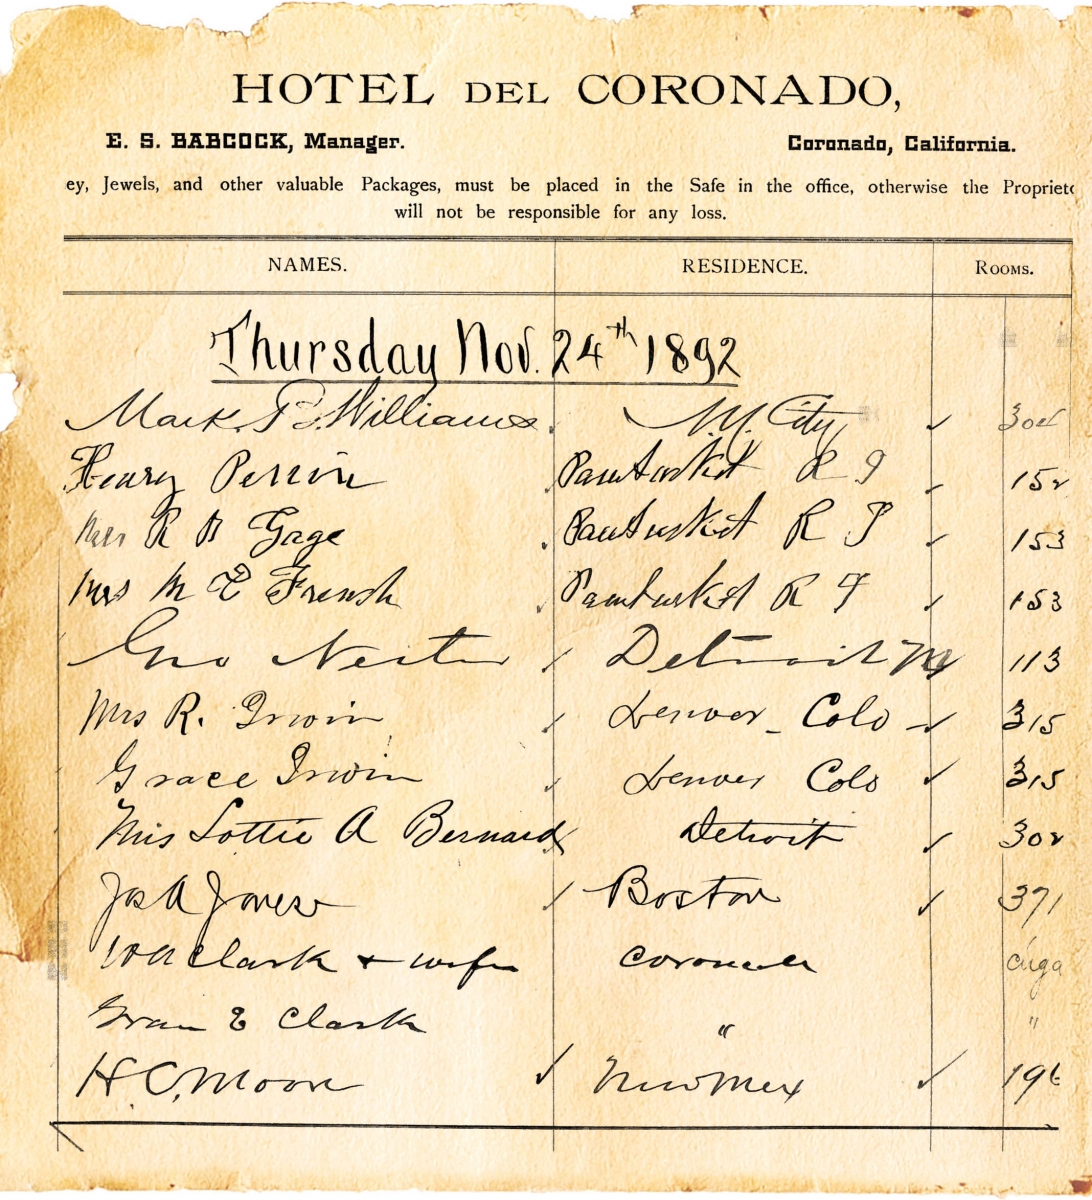 HOTEL DEL CORONADO,
E. S. BABCOCK, Manager. Coronado, California.
ey, Jewels, and other valuable Packages, must be placed in the Safe in the office, otherwise the Propriet
will not be responsible for any loss.
NAMES. RESIDENCE. ROOMS.
Thursday Nov. 24th 1892
Mark. B. Williams City 304
Henry Perrin Pawtucket R I 152
Mrs R B Gage Pawtucket R I 153
Mrs M E French Pawtucket R I 153
Geo Nester Detroit M 113
Mrs R. Irwin Denver - Colo - 315
Grace Irwin Denver Colo 315
Mrs Lottie A Bernard Detroit 302
Jos A Jones Boston 371
W A Clark + wife Coronado
E Clark " "
H. C. Moore New Mex 196